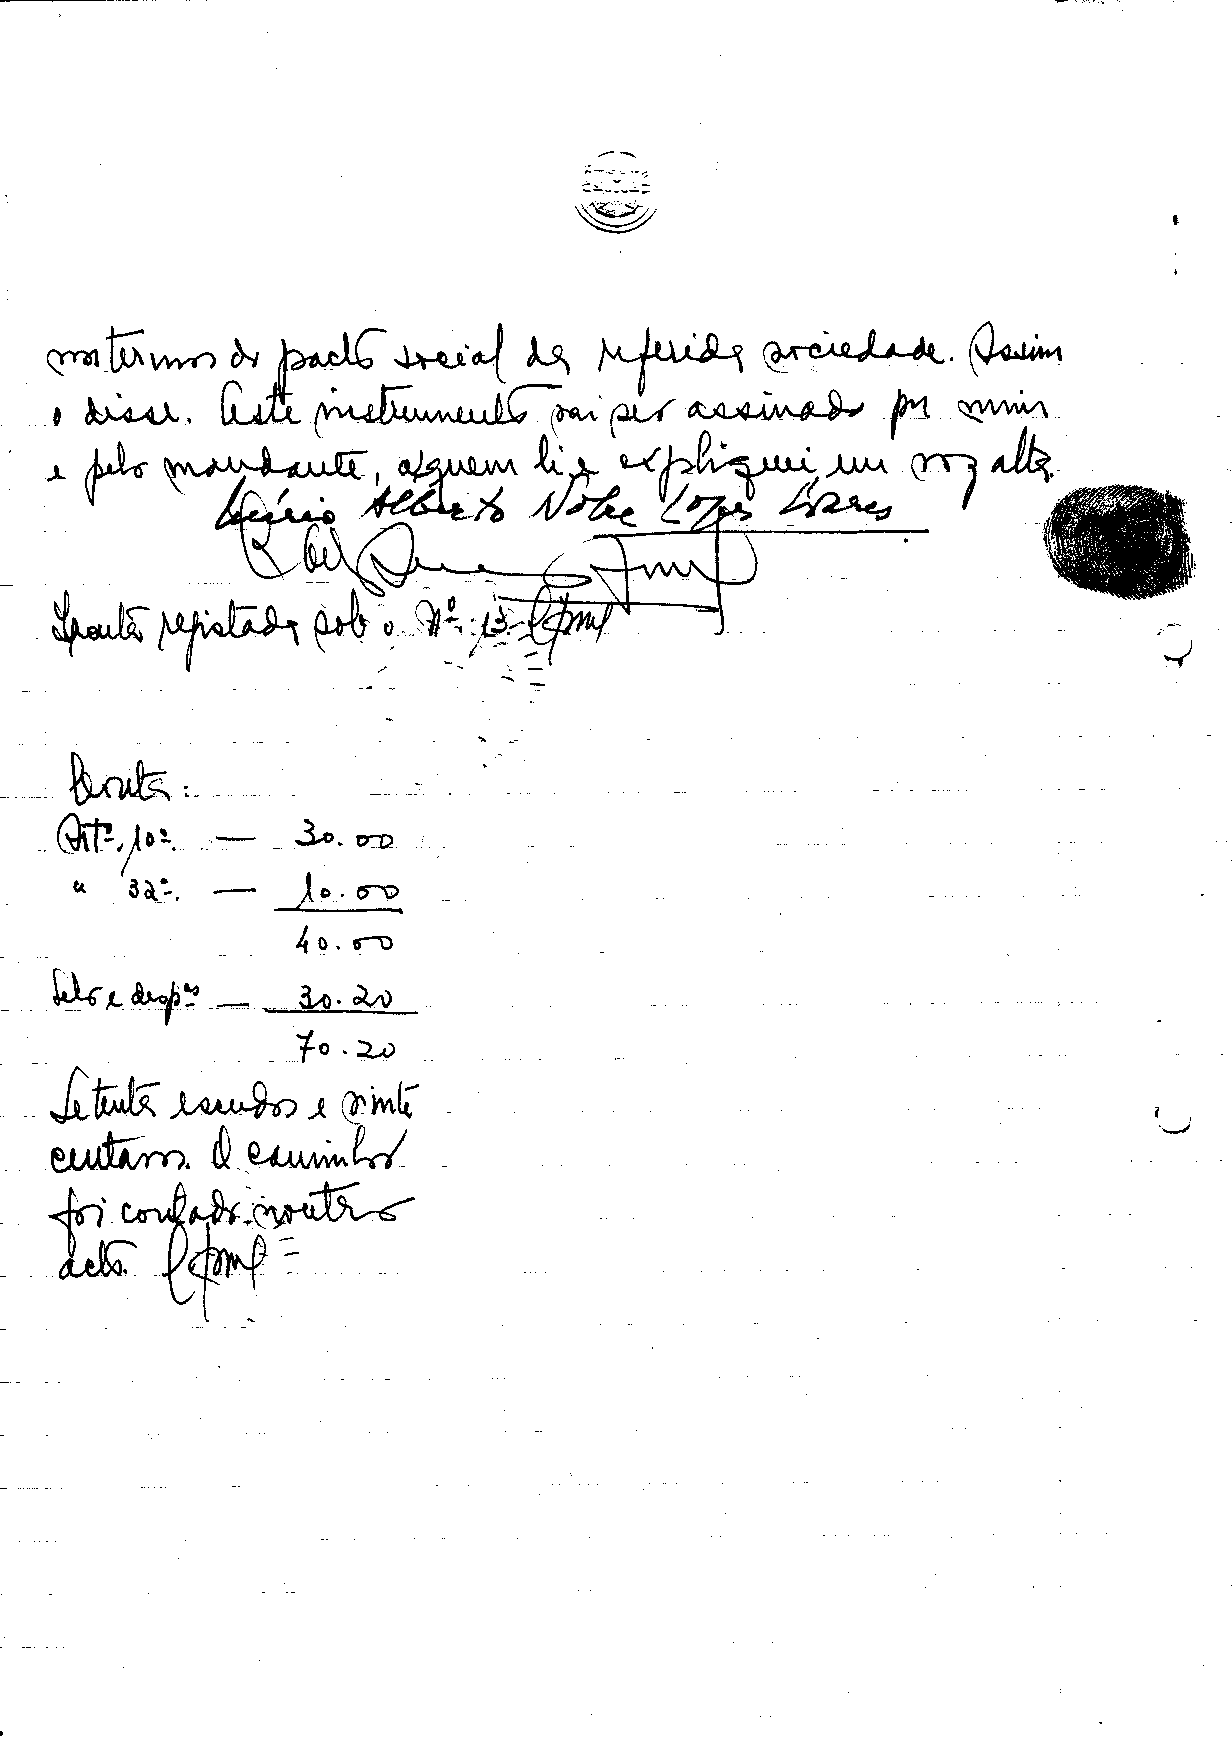 nos termos do pacto social da referida sociedade. Assim
o disse. Este instrumento vai ser assinado por mim
e pelo mandante, a quem li e expliquei, em voz alta.
Mário Alberto Nobre Lopes Soares
registada sob o Nº. 13.
Conta:
Artº. 10º. — 30.00
" 32º. — 10.00
40.00
Selo e despªs — 30.20
70.20
Setenta escudos e vinte
centavos. O caminho
foi contado noutro
acto.